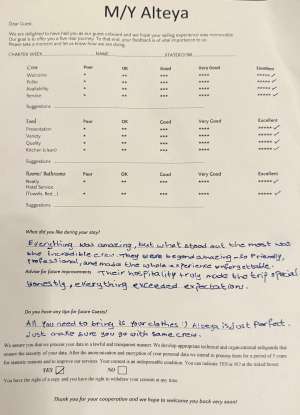 M/Y Alteya
Dear Guest,
We are delighted to have had you as our guest onboard and we hope your sailing experience was memorable.
Our goal is to offer you a five star journey. To that end, your feedback is of vital importance to us.
Please take a moment and let us know how we are doing.
CHARTER WEEK NAME STATEROOM
Crew Poor OK Good Very Good Excellent
Welcome * ** *** **** ***** ✓
Polite * ** *** **** ***** ✓
Availability * ** *** **** ***** ✓
Service * ** *** **** ***** ✓
Suggestions
Food Poor OK Good Very Good Excellent
Presentation * ** *** **** ***** ✓
Variety * ** *** **** ***** ✓
Quality * ** *** **** ***** ✓
Kitchen (clean) * ** *** **** ***** ✓
Suggestions
Room/ Bathrooms Poor OK Good Very Good Excellent
Neatly * ** *** **** ***** ✓
Hotel Service
(Towels, Bed...) * ** *** **** ***** ✓
Suggestions
What did you like during your stay?
Everything was amazing, but what stood out the most was
the incredible crew. They were beyond amazing - so friendly,
professional, and made the whole experience unforgettable.
Advise for future improvements Their hospitality truly made the trip special
Honestly, everything exceeded expectations.
Do you have any tips for future Guests?
All you need to bring is your clothes :) Alteya is just perfect.
Just make sure you go with same crew.
We assure you that we process your data in a lawful and transparent manner. We develop appropriate technical and organizational safeguards that
ensure the security of your data. After the anonymization and encryption of your personal data we intend to process them for a period of 5 years
for statistic reasons and to improve our services. Your consent is an indispensable condition. You can indicate YES or NO at the ticked boxes:
YES ☑ NO ☐
You have the right of a copy and you have the right to withdraw your consent at any time.
Thank you for your cooperation and we hope to welcome you back very soon!